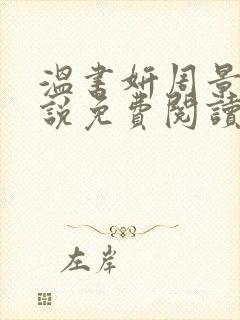 溫書妍周景
說免費閱讀
左岸